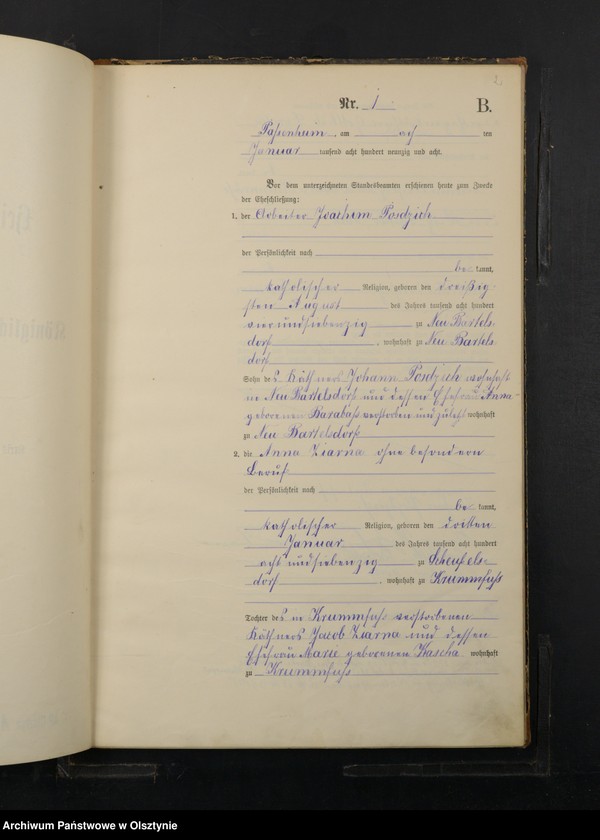 2.
Nr. 1. B.
Passenheim, am acht ten
Januar tausend acht hundert neunzig und acht.
Vor dem unterzeichneten Standesbeamten erschienen heute zum Zwecke
der Eheschließung:
1. der Arbeiter Joachim Posdzich
der Persönlichkeit nach
be kannt,
katholischer Religion, geboren den dreißig-
sten August des Jahres tausend acht hundert
vierundsiebenzig zu Neu Bartels-
dorf, wohnhaft zu Neu Bartels
dorf
Sohn des Käthners Johann Posdzich wohnhaft
in Neu Bartelsdorf und dessen Ehefrau Anna
geborenen Barabass verstorben und zuletzt wohnhaft
zu Neu Bartelsdorf
2. die Anna Ziarna ohne besonderen
Beruf
der Persönlichkeit nach
be kannt,
katholischer Religion, geboren den dritten
Januar des Jahres tausend acht hundert
acht und siebenzig zu Scheufels-
dorf, wohnhaft zu Krummfuß
Tochter des in Krummfuß verstorbenen
Käthners Jacob Ziarna und dessen
Ehefrau Marie geborenen Kascha wohnhaft
zu Krummfuß
Archiwum Państwowe w Olsztynie